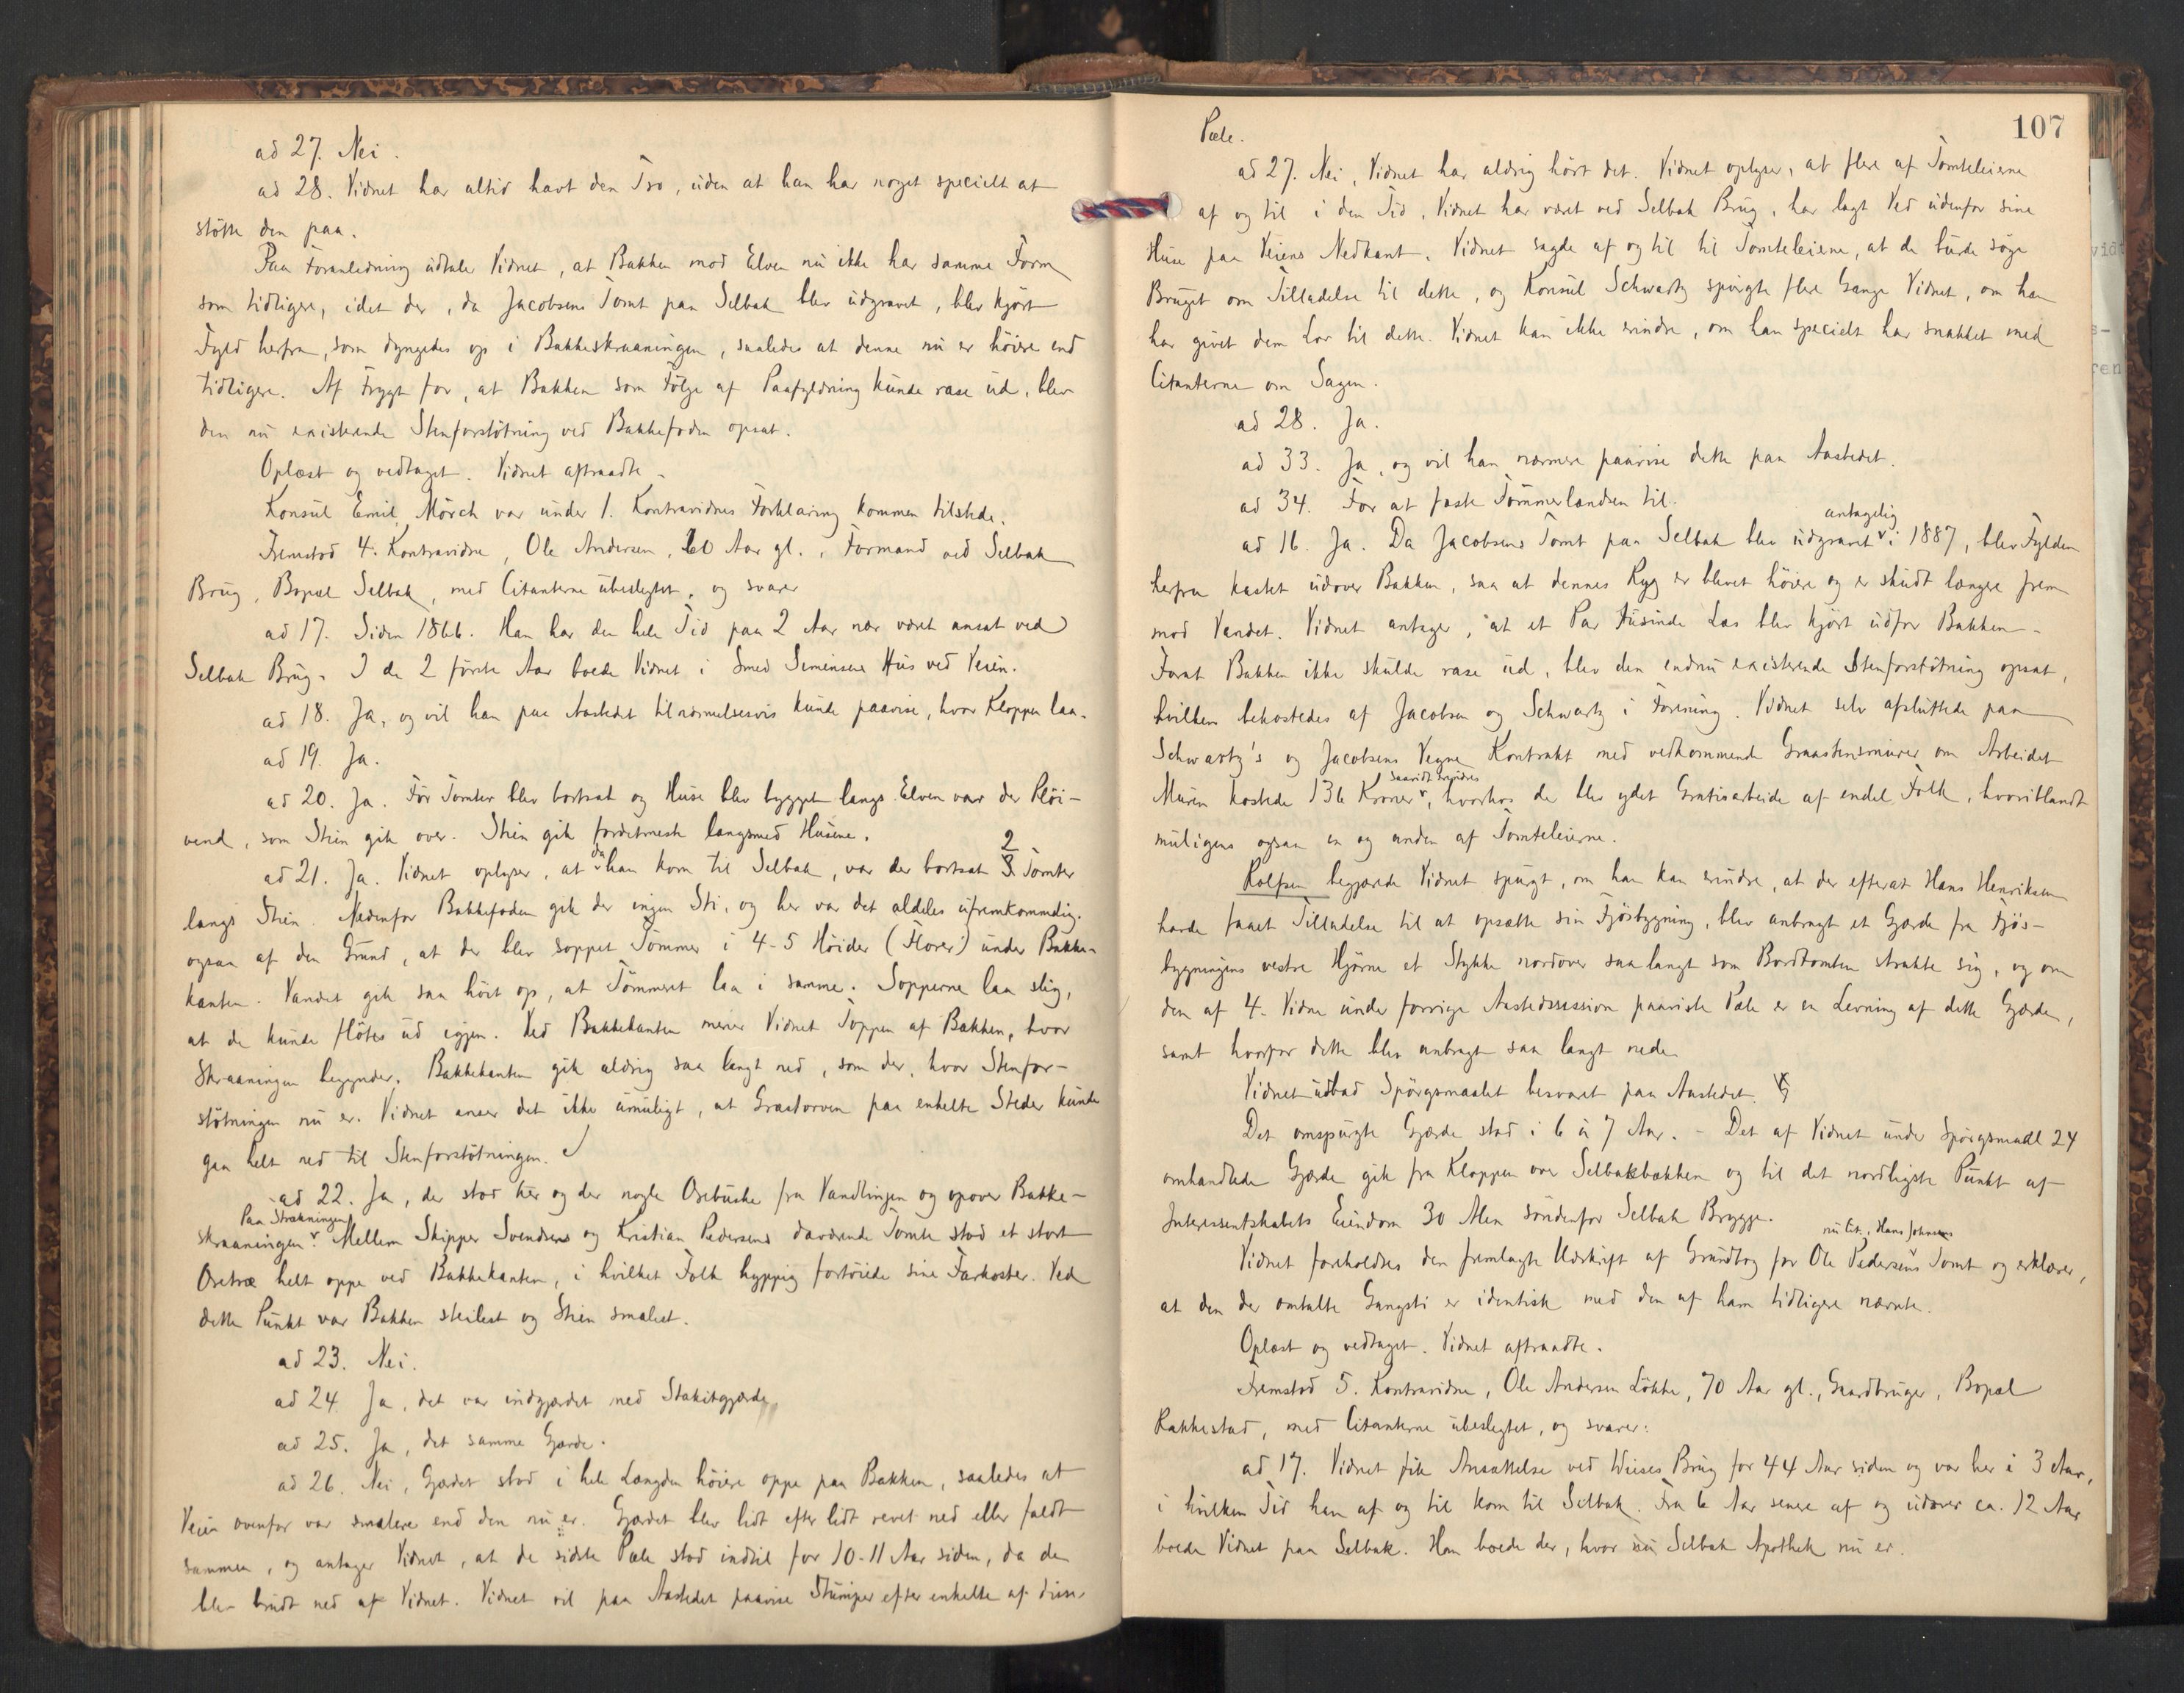 ad 27. Nei.
ad 28. Vidnet har altid havt den Tro, uden at han har noget specielt at
støtte den paa.
Paa Foranledning udtaler Vidnet, at Bakken mod Elven nu ikke har samme Form
som tidligere, idet der, da Jacobsens Tomt paa Selbak blev udgravet, blev kjørt
Fyld herfra, som dyngedes op i Bakkeskraaningen, saaledes at denne nu er høiere end
tidligere. Af Frygt for, at Bakken som Følge af Paafyldning kunde rase ud, blev
den nu existerende Stenforstøtning ved Bakkefoden opsat.
Oplæst og vedtaget. Vidnet aftraadte.
Konsul Emil Mørch var under 1. Kontravidnes Forklaring kommen tilstede.
Fremstod 4. Kontravidne, Ole Andersen, 60 Aar gl., Formand ved Selbak
Brug, Bopæl Selbak, med Citanterne ubeslegtet, og svarer
ad 17. Siden 1866. Han har den hele Tid paa 2 Aar nær været ansat ved
Selbak Brug. I de 2 første Aar boede Vidnet i Smed Simensens Hus ved Veien.
ad 18. Ja, og vil han paa Aastedet tilnærmelsesvis kunde paavise, hvor Kloppen laa.
ad 19. Ja.
ad 20. Ja. Før Tomter blev bortsat og Huse blev bygget langs Elven var der Pløi-
vend, som Stien gik over. Stien gik fordetmeste langsmed Husene.
ad 21. Ja. Vidnet oplyser, at da han kom til Selbak, var der bortsat 2 Tomter
langs Stien. Nedenfor Bakkefoden gik der ingen Sti, og her var det aldeles ufremkommelig.
ogsaa af den Grund, at der blev soppet Tømmer i 4-5 Høider (Florer) under Bakke-
kanten. Vandet gik saa høit op, at Tømmeret laa i samme. Sopperne laa slig,
at de kunde fløtes ud igjen. Ved Bakkekanten mener Vidnet Toppen af Bakken, hvor
Skraaningen begynder. Bakkekanten gik aldrig saa langt ned, som der, hvor Stenfor-
støtningen nu er. Vidnet anser det ikke umuligt, at Græstorven paa enkelte Steder kunde
gaa helt ned til Stenforstøtningen.
ad 22. Ja, der stod her og der nogle Orebuske fra Vandlinjen og opover Bakke-
Paa Strækningen
skraaningen. Mellem Skipper Svendsens og Kristian Pedersens daværende Tomte stod et stort
Oretræ helt oppe ved Bakkekanten, i hvilket Folk hyppig fortøiede sine Farkoster. Ved
dette Punkt var Bakken steilest og Stien smalest.
ad 23. Nei.
ad 24. Ja, det var indgjærdet med Stakitgjærde.
ad 25. Ja, det samme Gjærde.
ad 26. Nei, Gjærdet stod i hele Længden høiere oppe paa Bakken, saaledes at
Veien ovenfor var smalere end den nu er. Gjærdet blev lidt efter lidt revet ned eller faldt
sammen, og antager Vidnet, at de sidste Pæle stod indtil for 10-11 Aar siden, da de
blev brudt ned af Vidnet. Vidnet vil paa Aastedet paavise Stumper efter enkelte af disse
107
Pæle.
ad 27. Nei, Vidnet har aldrig hørt det. Vidnet oplyser, at flere af Tomteleierne
af og til i den Tid, Vidnet har været ved Selbak Brug, har lagt Ved udenfor sine
Huse paa Veiens Nedkant. Vidnet sagde af og til til Tomteleierne, at de burde søge
Bruget om Tilladelse til dette, og Konsul Schwartz spurgte flere Gange Vidnet, om han
har givet dem Lov til dette. Vidnet kan ikke erindre, om han specielt har snakket med
Citanterne om Sagen.
ad 28. Ja.
ad 33. Ja, og vil han nærmere paavise dette paa Aastedet.
ad 34. For at fæste Tømmerlændsen til.
antagelig
ad 16. Ja. Da Jacobsens Tomt paa Selbak blev udgravet i 1887, blev Fylden
herfra kastet udover Bakken, saa at dennes Ryg er blevet høiere og er skudt længere frem
mod Vandet. Vidnet antager, at et Par Tusinde Læs blev kjørt udfor Bakken.
Forat Bakken ikke skulde rase ud, blev den endnu existerende Stenforstøtning opsat,
hvilken bekostedes af Jacobsen og Schwartz i Forening. Vidnet selv afsluttede paa
Schwartz's og Jacobsens Vegne Kontrakt med vedkommende Graastensmurer om Arbeidet
saavidt erindres
Muren kostede 136 Kroner, hvorhos der blev ydet Gratisarbeide af endel Folk, hvoriblandt
muligens ogsaa en og anden af Tomteleierne.
Rolfsen begjærede Vidnet spurgt, om han kan erindre, at der efterat Hans Henriksen
havde faaet Tilladelse til at opsætte sin Fjøsbygning, blev anbragt et Gjærde fra Fjøs-
bygningens vestre Hjørne et Stykke nordover saa langt som Bordtomten strakte sig, og om
den af 4. Vidne under forrige Aastedssession paaviste Pæle er en Levning af dette Gjærde,
samt hvorfor dette blev anbragt saa langt nede.
Vidnet udbad Spørgsmaalet besvaret paa Aastedet.
Det omspurgte Gjærde stod i 6 à 7 Aar. – Det af Vidnet under Spørgsmaal 24
omhandlede Gjærde gik fra Kloppen over Selbakbækken og til det nordligste Punkt af
Interessentskabets Eiendom 30 Alen søndenfor Selbak Brygge.
nu Cit. Hans Johnsens
Vidnet foreholdtes den fremlagte Udskrift af Grundbog for Ole Pedersens Tomt og erklærer,
at den der omtalte Gangsti er identisk med den af ham tidligere nævnte.
Oplæst og vedtaget. Vidnet aftraadte.
Fremstod 5. Kontravidne, Ole Andersen Løkke, 70 Aar gl., Gaardbruger, Bopæl
Rakkestad, med Citanterne ubeslegtet, og svarer:
ad 17. Vidnet fik Ansættelse ved Wieses Brug for 44 Aar siden og var her i 3 Aar,
i hvilken Tid han af og til kom til Selbak. Fra 6 Aar senere af og udover ca. 12 Aar
boede Vidnet paa Selbak. Han boede der, hvor Selbak Apothek nu er.